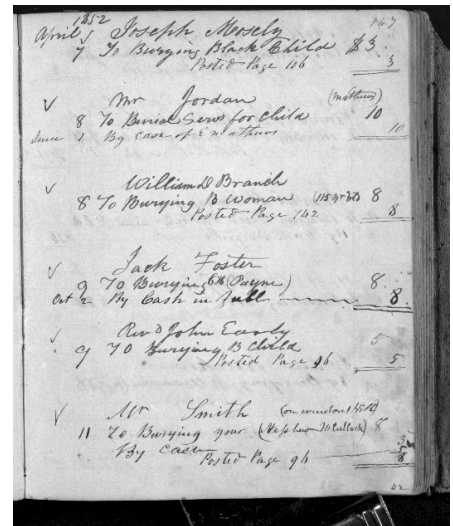 1852 167
April 7 Joseph Mosely
To Burying Black Child $3.
Posted Page 106 3
Mr Jordan (Mathews)
8 To Burial Serv for Child 10
June 1 By Cash of E Mathews 10
William D Branch
8 To Burying B Woman 8
Posted Page 142 8
Jack Foster
9 To Burying (Payne) 8
Oct 2 By Cash in full 8.
Revd John Early 5
9 To Burying B Child
Posted Page 96 5
Mr Smith (on Hill)
11 To Burying your 8
By Cash
Posted Page 96 8